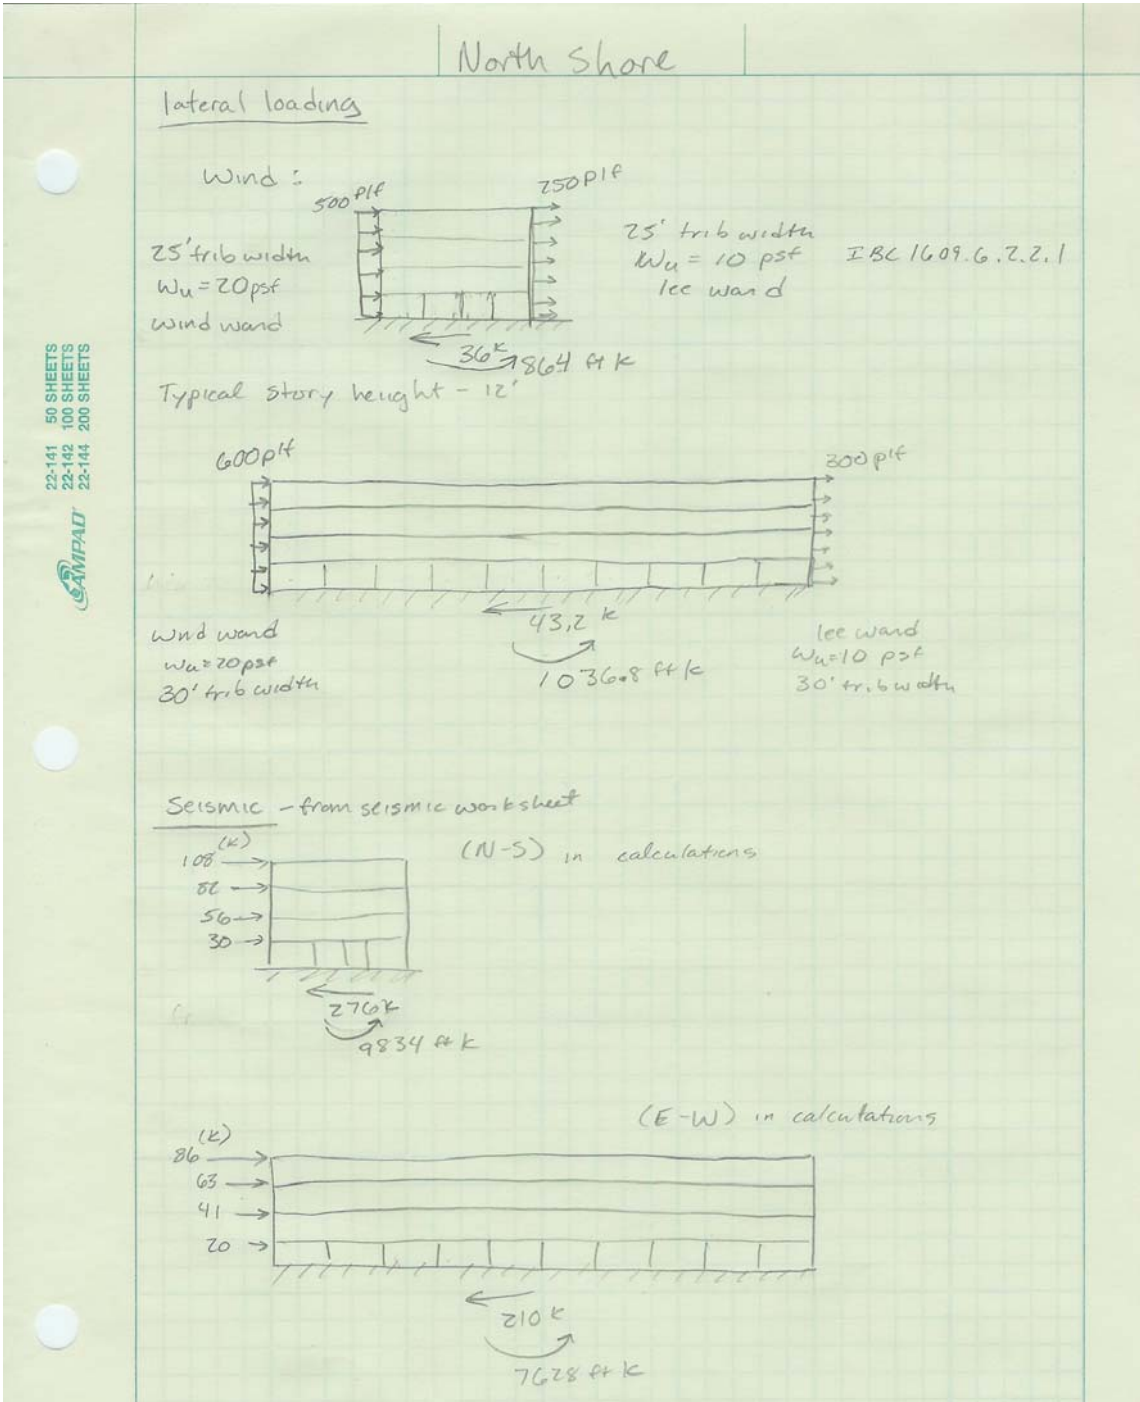 North Shore
lateral loading
Wind :
500 plf
250 plf
25' trib width
Wu = 20 psf
wind ward
25' trib width
Wu = 10 psf
lee ward
IBC 1609.6.2.2.1
36k
864 ft k
Typical story height - 12'
600 plf
300 plf
wind ward
wu = 20 psf
30' trib width
43.2 k
1036.8 ft k
lee ward
Wu = 10 psf
30' trib width
Seismic - from seismic worksheet
(k)
108
82
56
30
(N-S) in calculations
276k
9834 ft k
(E-W) in calculations
(k)
86
63
41
20
210 k
7628 ft k
22-141 50 SHEETS
22-142 100 SHEETS
22-144 200 SHEETS
AMPAD